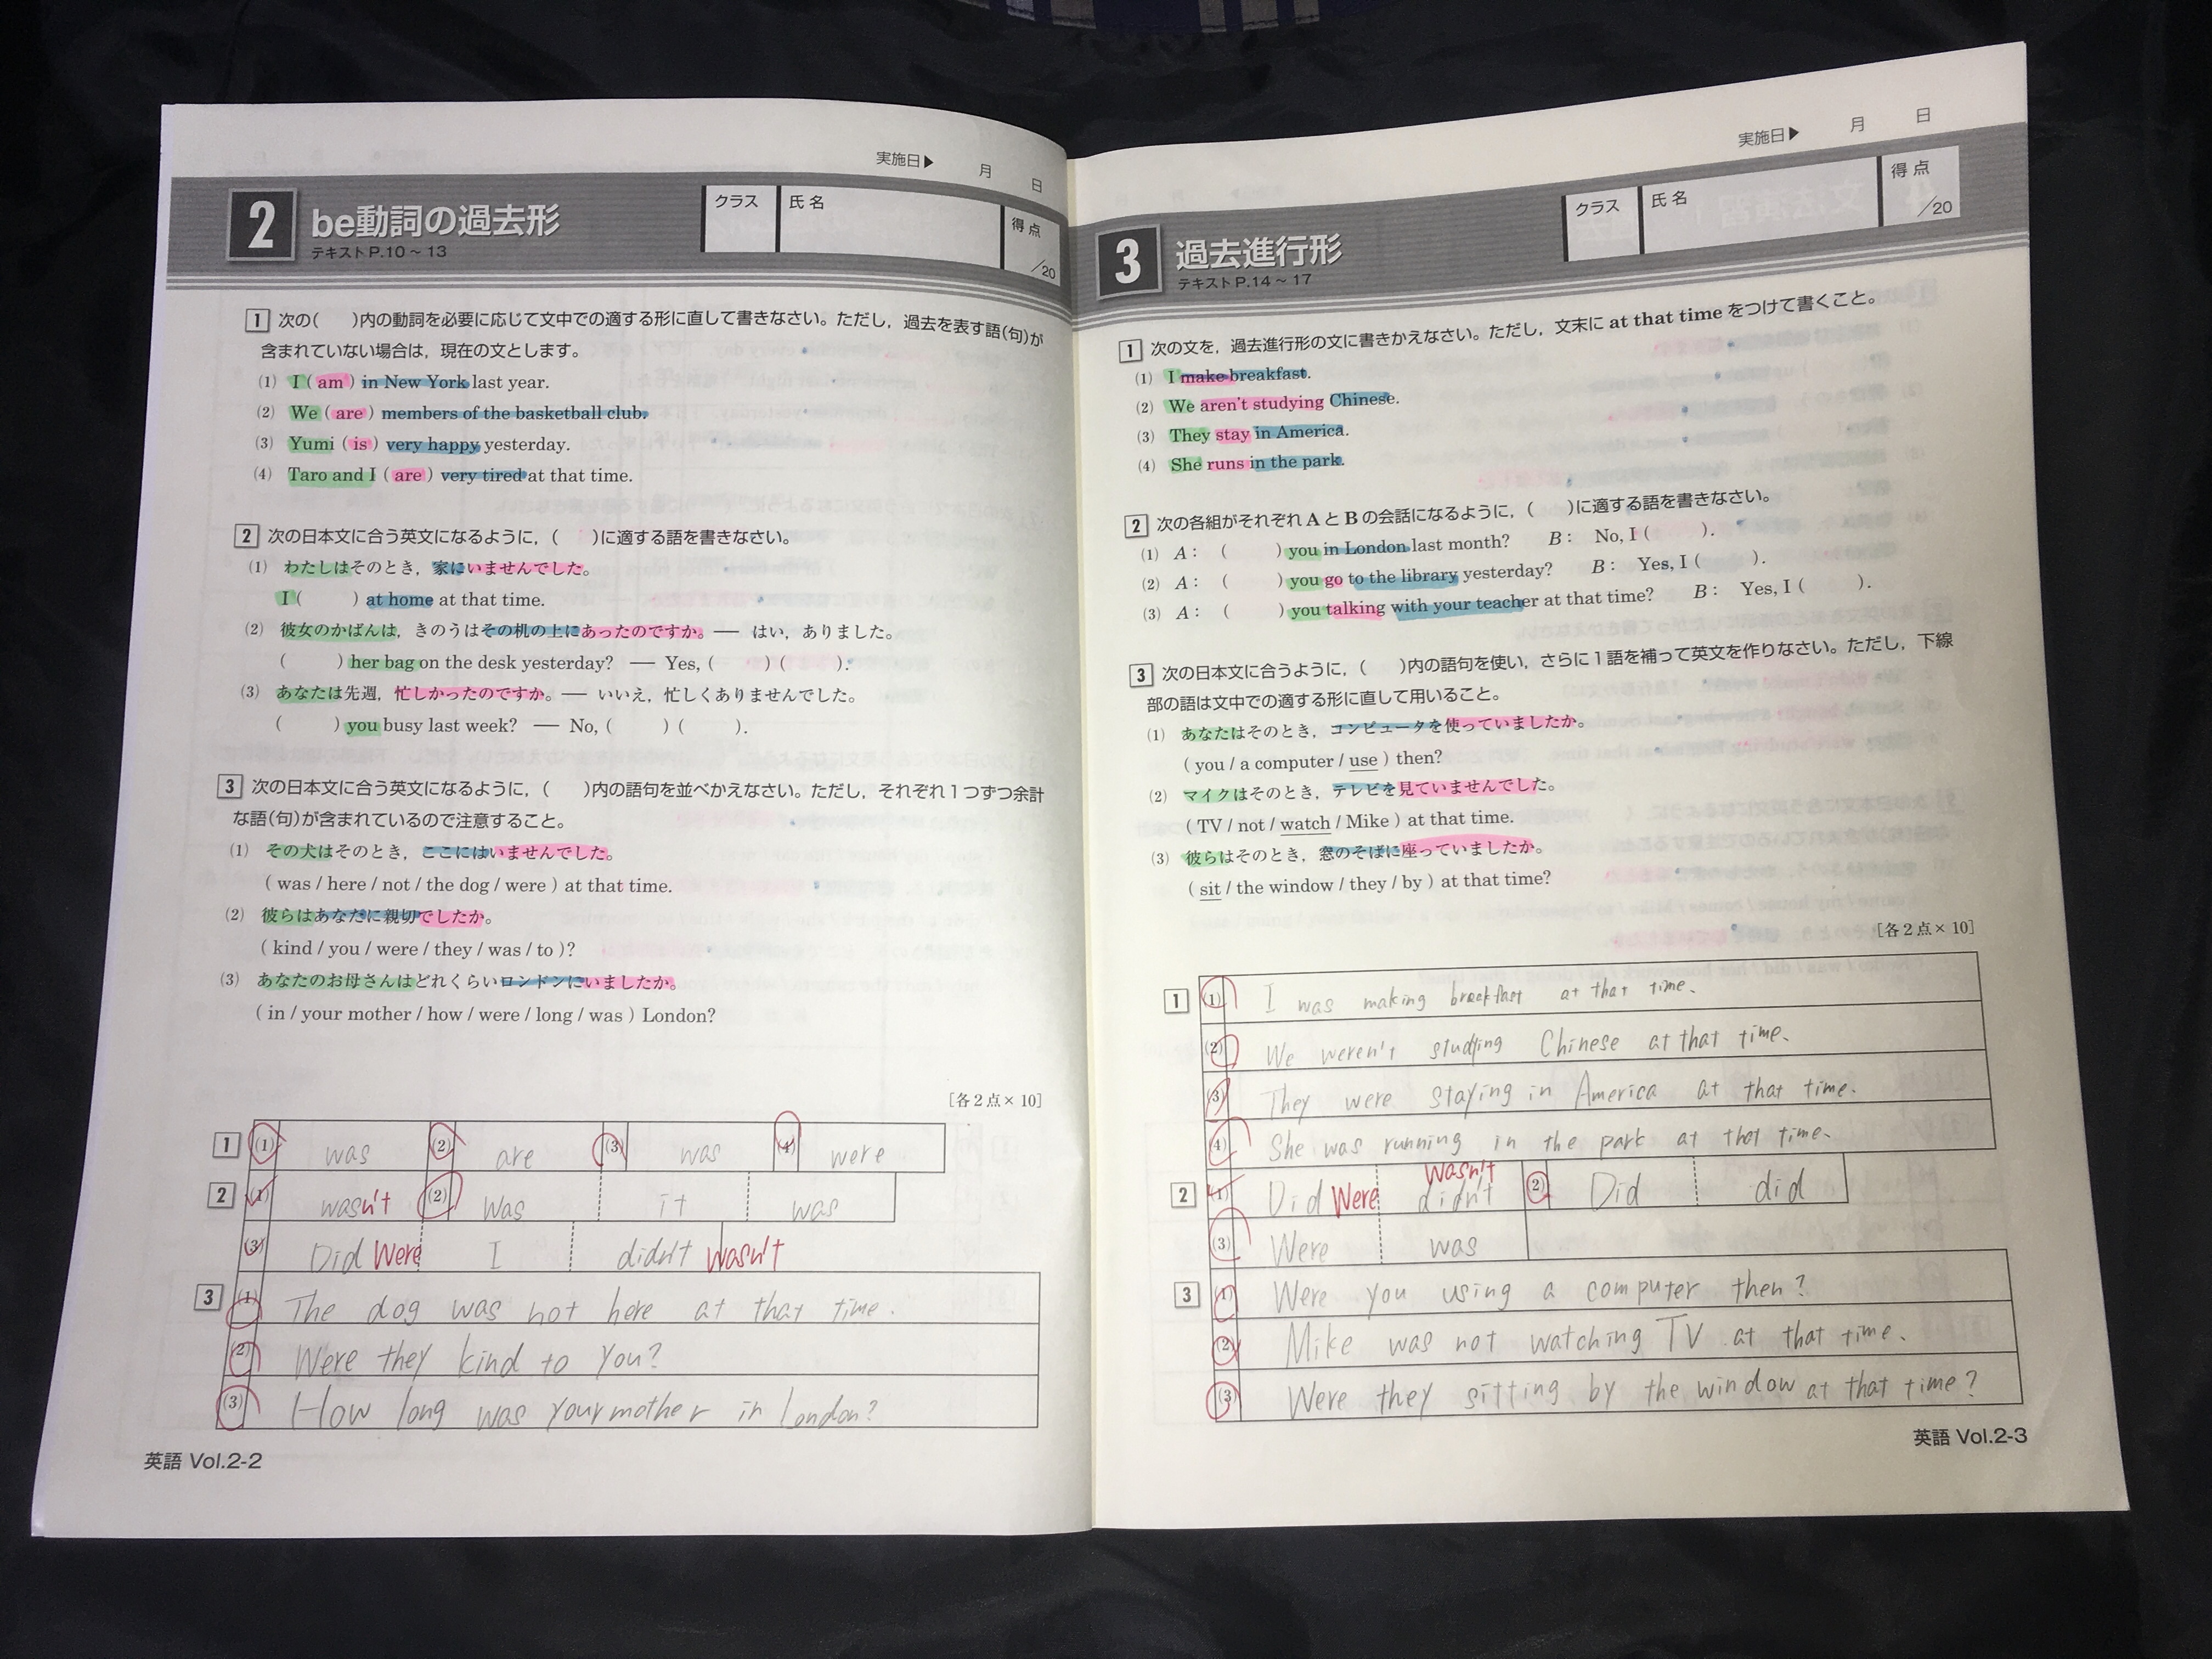 実施日▶ 月 日
2 be動詞の過去形
テキストP.10～13
クラス 氏名 得点 /20
1 次の( )内の動詞を必要に応じて文中での適する形に直して書きなさい。ただし，過去を表す語(句)が
含まれていない場合は，現在の文とします。
(1) I ( am ) in New York last year.
(2) We ( are ) members of the basketball club.
(3) Yumi ( is ) very happy yesterday.
(4) Taro and I ( are ) very tired at that time.
2 次の日本文に合う英文になるように，( )に適する語を書きなさい。
(1) わたしはそのとき，家にいませんでした。
I ( ) at home at that time.
(2) 彼女のかばんは，きのうはその机の上にあったのですか。― はい，ありました。
( ) her bag on the desk yesterday? ― Yes, ( ) ( ).
(3) あなたは先週，忙しかったのですか。― いいえ，忙しくありませんでした。
( ) you busy last week? ― No, ( ) ( ).
3 次の日本文に合う英文になるように，( )内の語句を並べかえなさい。ただし，それぞれ1つずつ余計
な語(句)が含まれているので注意すること。
(1) その犬はそのとき，ここにはいませんでした。
( was / here / not / the dog / were ) at that time.
(2) 彼らはあなたに親切でしたか。
( kind / you / were / they / was / to )?
(3) あなたのお母さんはどれくらいロンドンにいましたか。
( in / your mother / how / were / long / was ) London?
[各2点×10]
1 (1) was (2) are (3) was (4) were
2 (1) wasn't (2) Was it was
(3) Did Were I didn't wasn't
3 (1) The dog was not here at that time.
(2) Were they kind to you?
(3) How long was your mother in London?
英語 Vol.2-2
実施日▶ 月 日
3 過去進行形
テキストP.14～17
クラス 氏名 得点 /20
1 次の文を，過去進行形の文に書きかえなさい。ただし，文末に at that time をつけて書くこと。
(1) I make breakfast.
(2) We aren't studying Chinese.
(3) They stay in America.
(4) She runs in the park.
2 次の各組がそれぞれAとBの会話になるように，( )に適する語を書きなさい。
(1) A： ( ) you in London last month? B： No, I ( ).
(2) A： ( ) you go to the library yesterday? B： Yes, I ( ).
(3) A： ( ) you talking with your teacher at that time? B： Yes, I ( ).
3 次の日本文に合うように，( )内の語句を使い，さらに1語を補って英文を作りなさい。ただし，下線
部の語は文中での適する形に直して用いること。
(1) あなたはそのとき，コンピュータを使っていましたか。
( you / a computer / use ) then?
(2) マイクはそのとき，テレビを見ていませんでした。
( TV / not / watch / Mike ) at that time.
(3) 彼らはそのとき，窓のそばに座っていましたか。
( sit / the window / they / by ) at that time?
[各2点×10]
1 (1) I was making breakfast at that time.
(2) We weren't studying Chinese at that time.
(3) They were staying in America at that time.
(4) She was running in the park at that time.
2 (1) Did Were didn't wasn't (2) Did did
(3) Were was
3 (1) Were you using a computer then?
(2) Mike was not watching TV at that time.
(3) Were they sitting by the window at that time?
英語 Vol.2-3